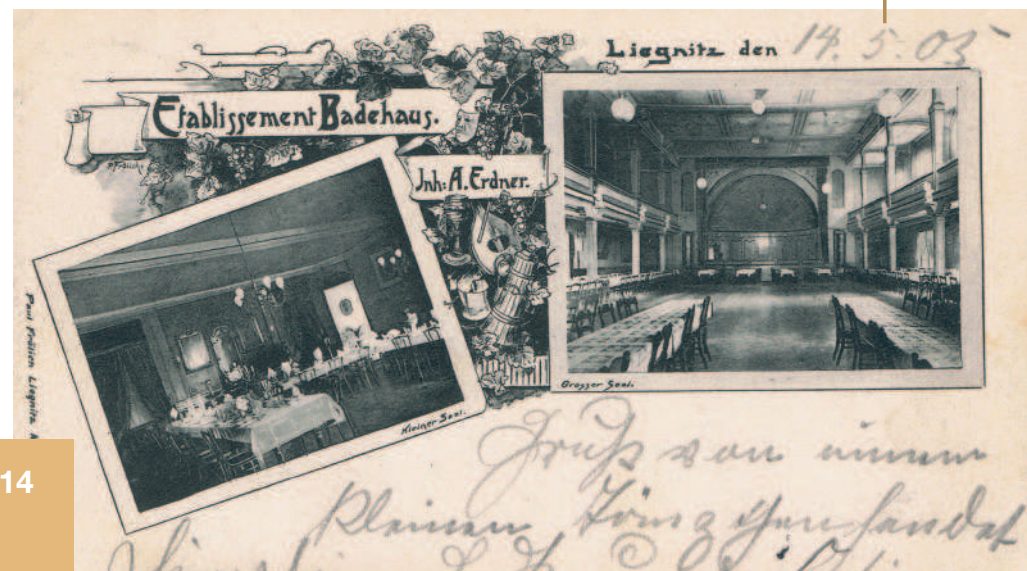 Liegnitz den 14. 5. 05
Etablissement Badehaus.
P. Frölich
Inh: A. Erdner.
Grosser Saal.
Kleiner Saal.
Paul Frölich Liegnitz.
Gruß von einem
kleinen sendet
14